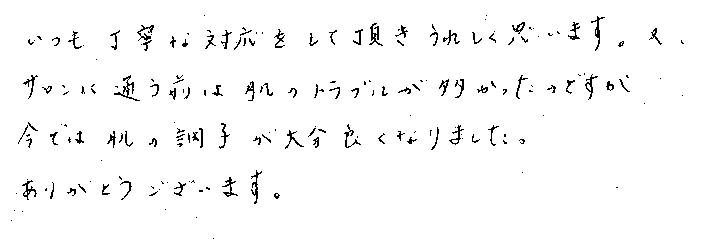 いつも丁寧な対応をして頂きうれしく思います。又、
サロンに通う前は肌のトラブルが多かったのですが
今では肌の調子が大分良くなりました。
ありがとうございます。